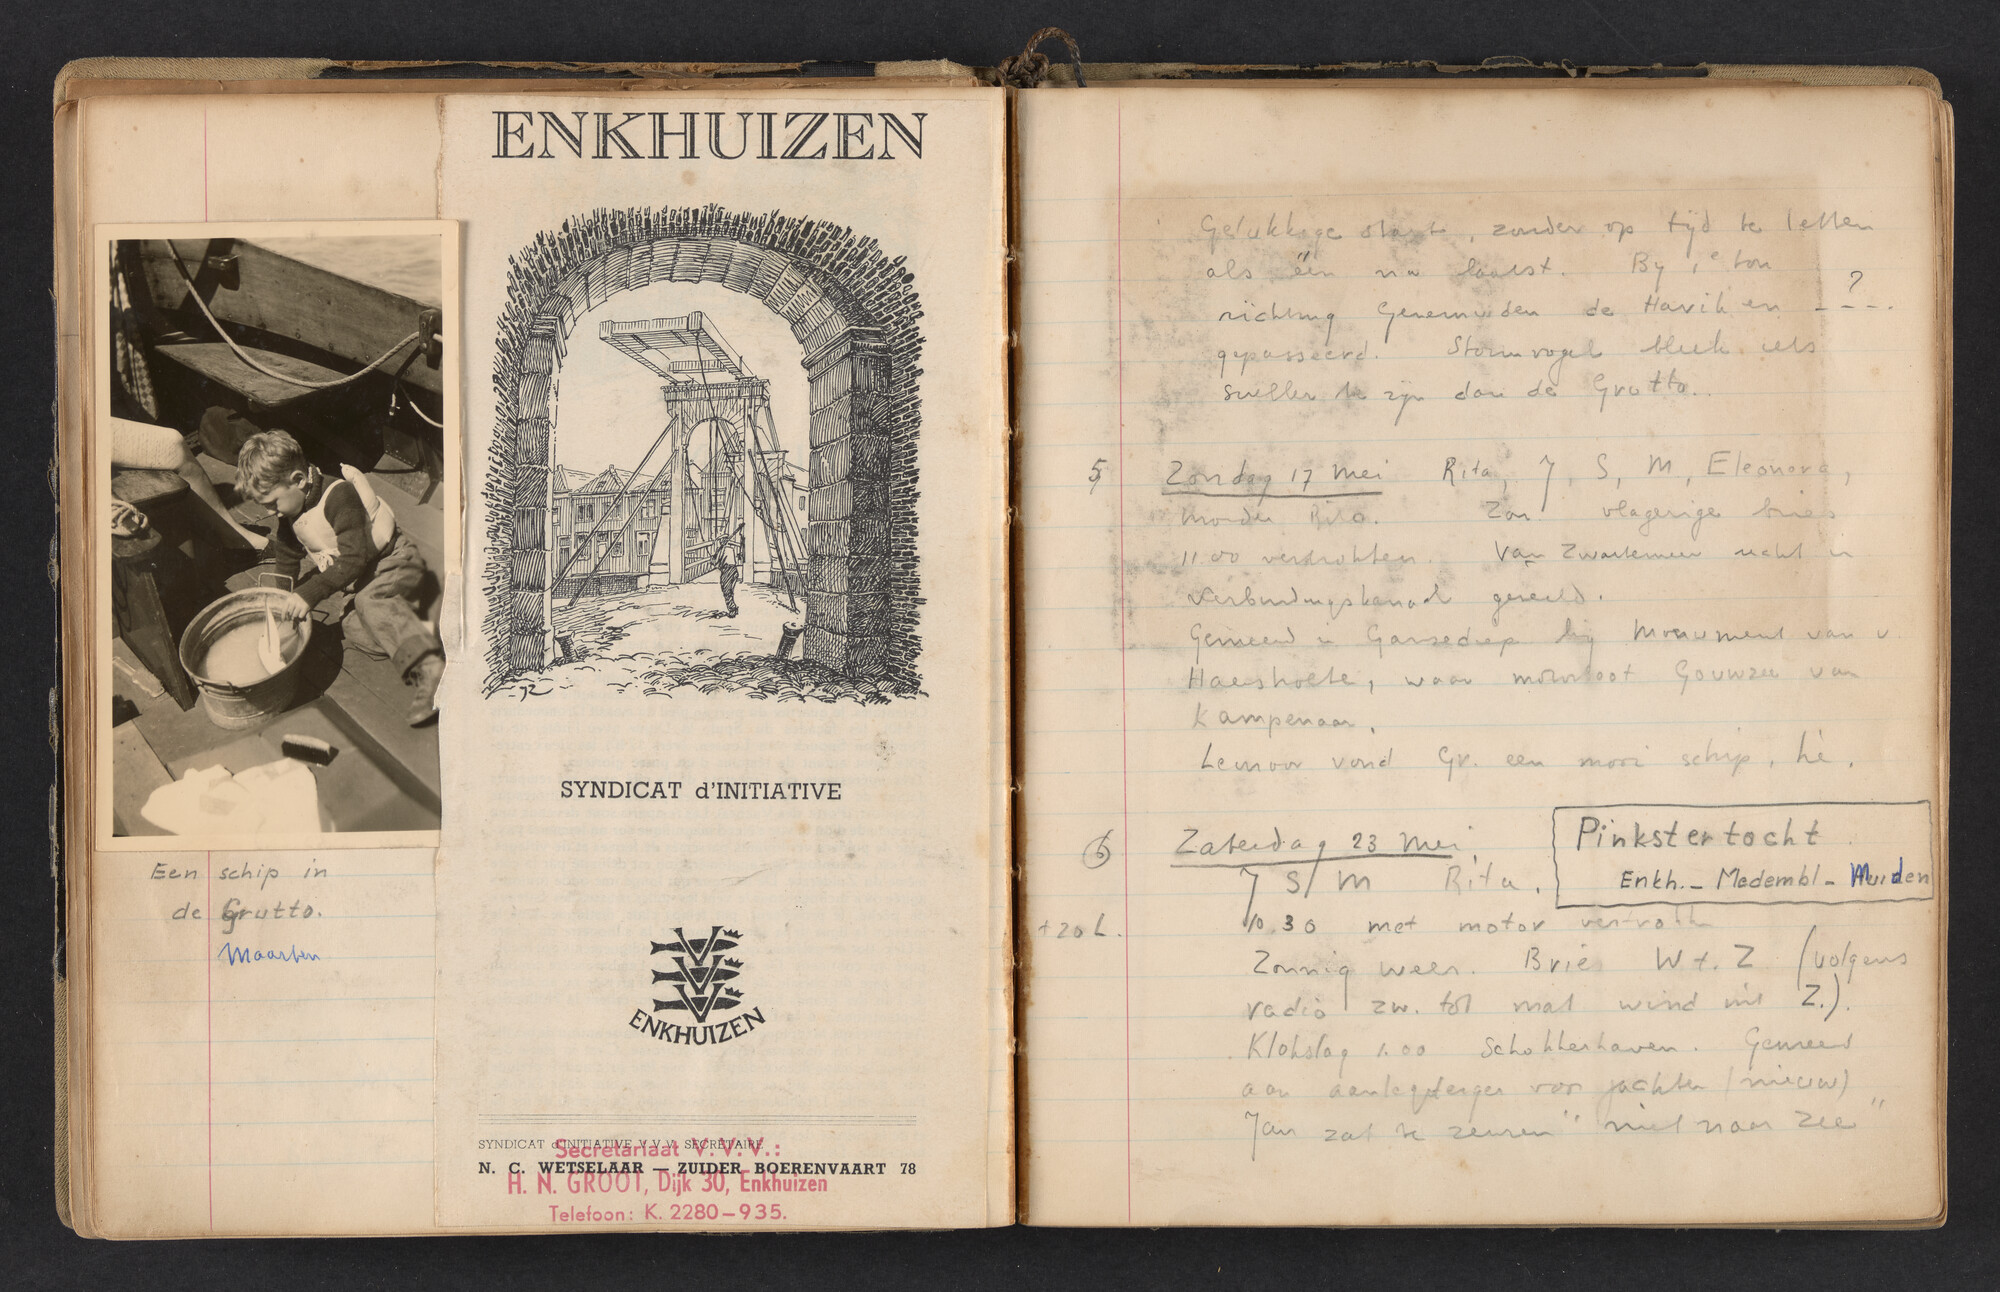 ENKHUIZEN
SYNDICAT d'INITIATIVE
ENKHUIZEN
SYNDICAT d'INITIATIVE V.V.V. SECRETAIRE
Secretariaat V.V.V.:
N. C. WETSELAAR — ZUIDER BOERENVAART 78
H. N. GROOT, Dijk 30, Enkhuizen
Telefoon: K. 2280-935.
Een schip in
de Grutto.
Maarten
Gelukkige start, zonder op tijd te letten
als één na laatst. By 1e ton
richting Genemuiden de Havik en - ? - .
gepasseerd. Stormvogel bleek iets
sneller te zijn dan de Grutto..
5 Zondag 17 Mei Rita, J, S, M, Eleonora,
moeder Rita. Zon vlagerige bries
11.00 vertrokken. Van Zwartemeer recht in
verbindingskanaal gezeild.
Gemeerd in Ganzediep bij Monument van v.
Haersholte, waar motorboot Gouwzee van
Kampenaar.
Leonoor vond Gr. een mooi schip, hè.
6 Zaterdag 23 Mei
Pinkstertocht
Enkh. - Medembl - Muiden
J S M Rita.
+20 L. 10.30 met motor vertrokken
Zonnig weer. Bries W t. Z (volgens
radio zw. tot mat wind uit Z.).
Klokslag 1.00 Schokkerhaven. Gemeerd
aan aanlegsteiger voor jachten (nieuw)
Jan zat te zeuren "niet naar zee"